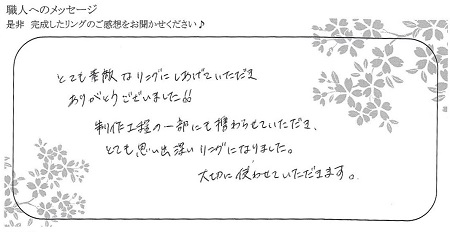 職人へのメッセージ
是非 完成したリングのご感想をお聞かせください♪
とても素敵なリングにしあげていただき
ありがとうございました!!
制作工程の一部にも携わらせていただき、
とても思い出深いリングになりました。
大切に使わせていただきます。